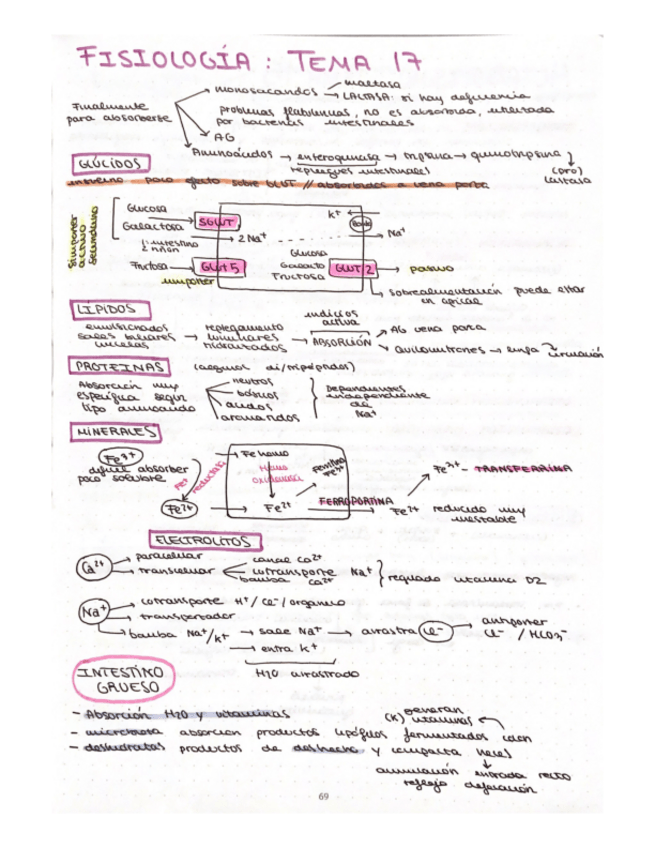 FISIOLOGÍA : TEMA 17
Finalmente para absorberse
monosacáridos
maltasa
LACTASA: si hay deficiencia
problemas flatulencias, no es absorbida, utilizada
por bacterias intestinales
AG
Aminoácidos → enteroquinasa → tripsina → quimotripsina
repliegues intestinales
(pro)
GLÚCIDOS
insulina poco efecto sobre GLUT // absorbidos a vena porta
simporter activo secundario
Glucosa
Galactosa
SGLT
1: intestino
2: riñón
2 Na+
K+
Na+
Fructosa → GLUT 5
uniporter
Glucosa
Galacto
Fructosa
GLUT 2 → pasivo
sobrealimentación puede estar
en apical
LÍPIDOS
emulsionados
sales biliares
micelas
replegamiento
luminares
hidratados
ABSORCIÓN
AG vena porta
Quilomicrones → linfa
circulación
PROTEÍNAS (algunos di/tripéptidos)
Absorción muy
específica según
tipo aminoácido
neutros
básicos
ácidos
iminoácidos
Dependientes
independiente
de
Na+
MINERALES
Fe3+
difícil absorber
poco soluble
reductasa
Fe2+
Fe hemo
Hemo
oxigenasa
Fe2+
Ferritina
Fe3+
FERROPORTINA
Fe2+ reducido muy
inestable
Fe3+ - TRANSFERRINA
ELECTROLITOS
Ca2+
paracelular
transcelular
canal Ca2+
cotransporte Na+
bomba Ca2+
regulado vitamina D2
Na+
cotransporte H+/Cl-/orgánico
transportador
bomba Na+/K+ → sale Na+ → arrastra Cl- → antiporter
Cl- / HCO3-
→ entra K+
H2O arrastrado
INTESTINO
GRUESO
- Absorción H2O y vitaminas
generan
(K) vitaminas
- microbiota absorción productos lipófilos fermentados colon
- deshidratas productos de deshecho y compacta heces
acumulación entrada recto
reflejo defecación
69